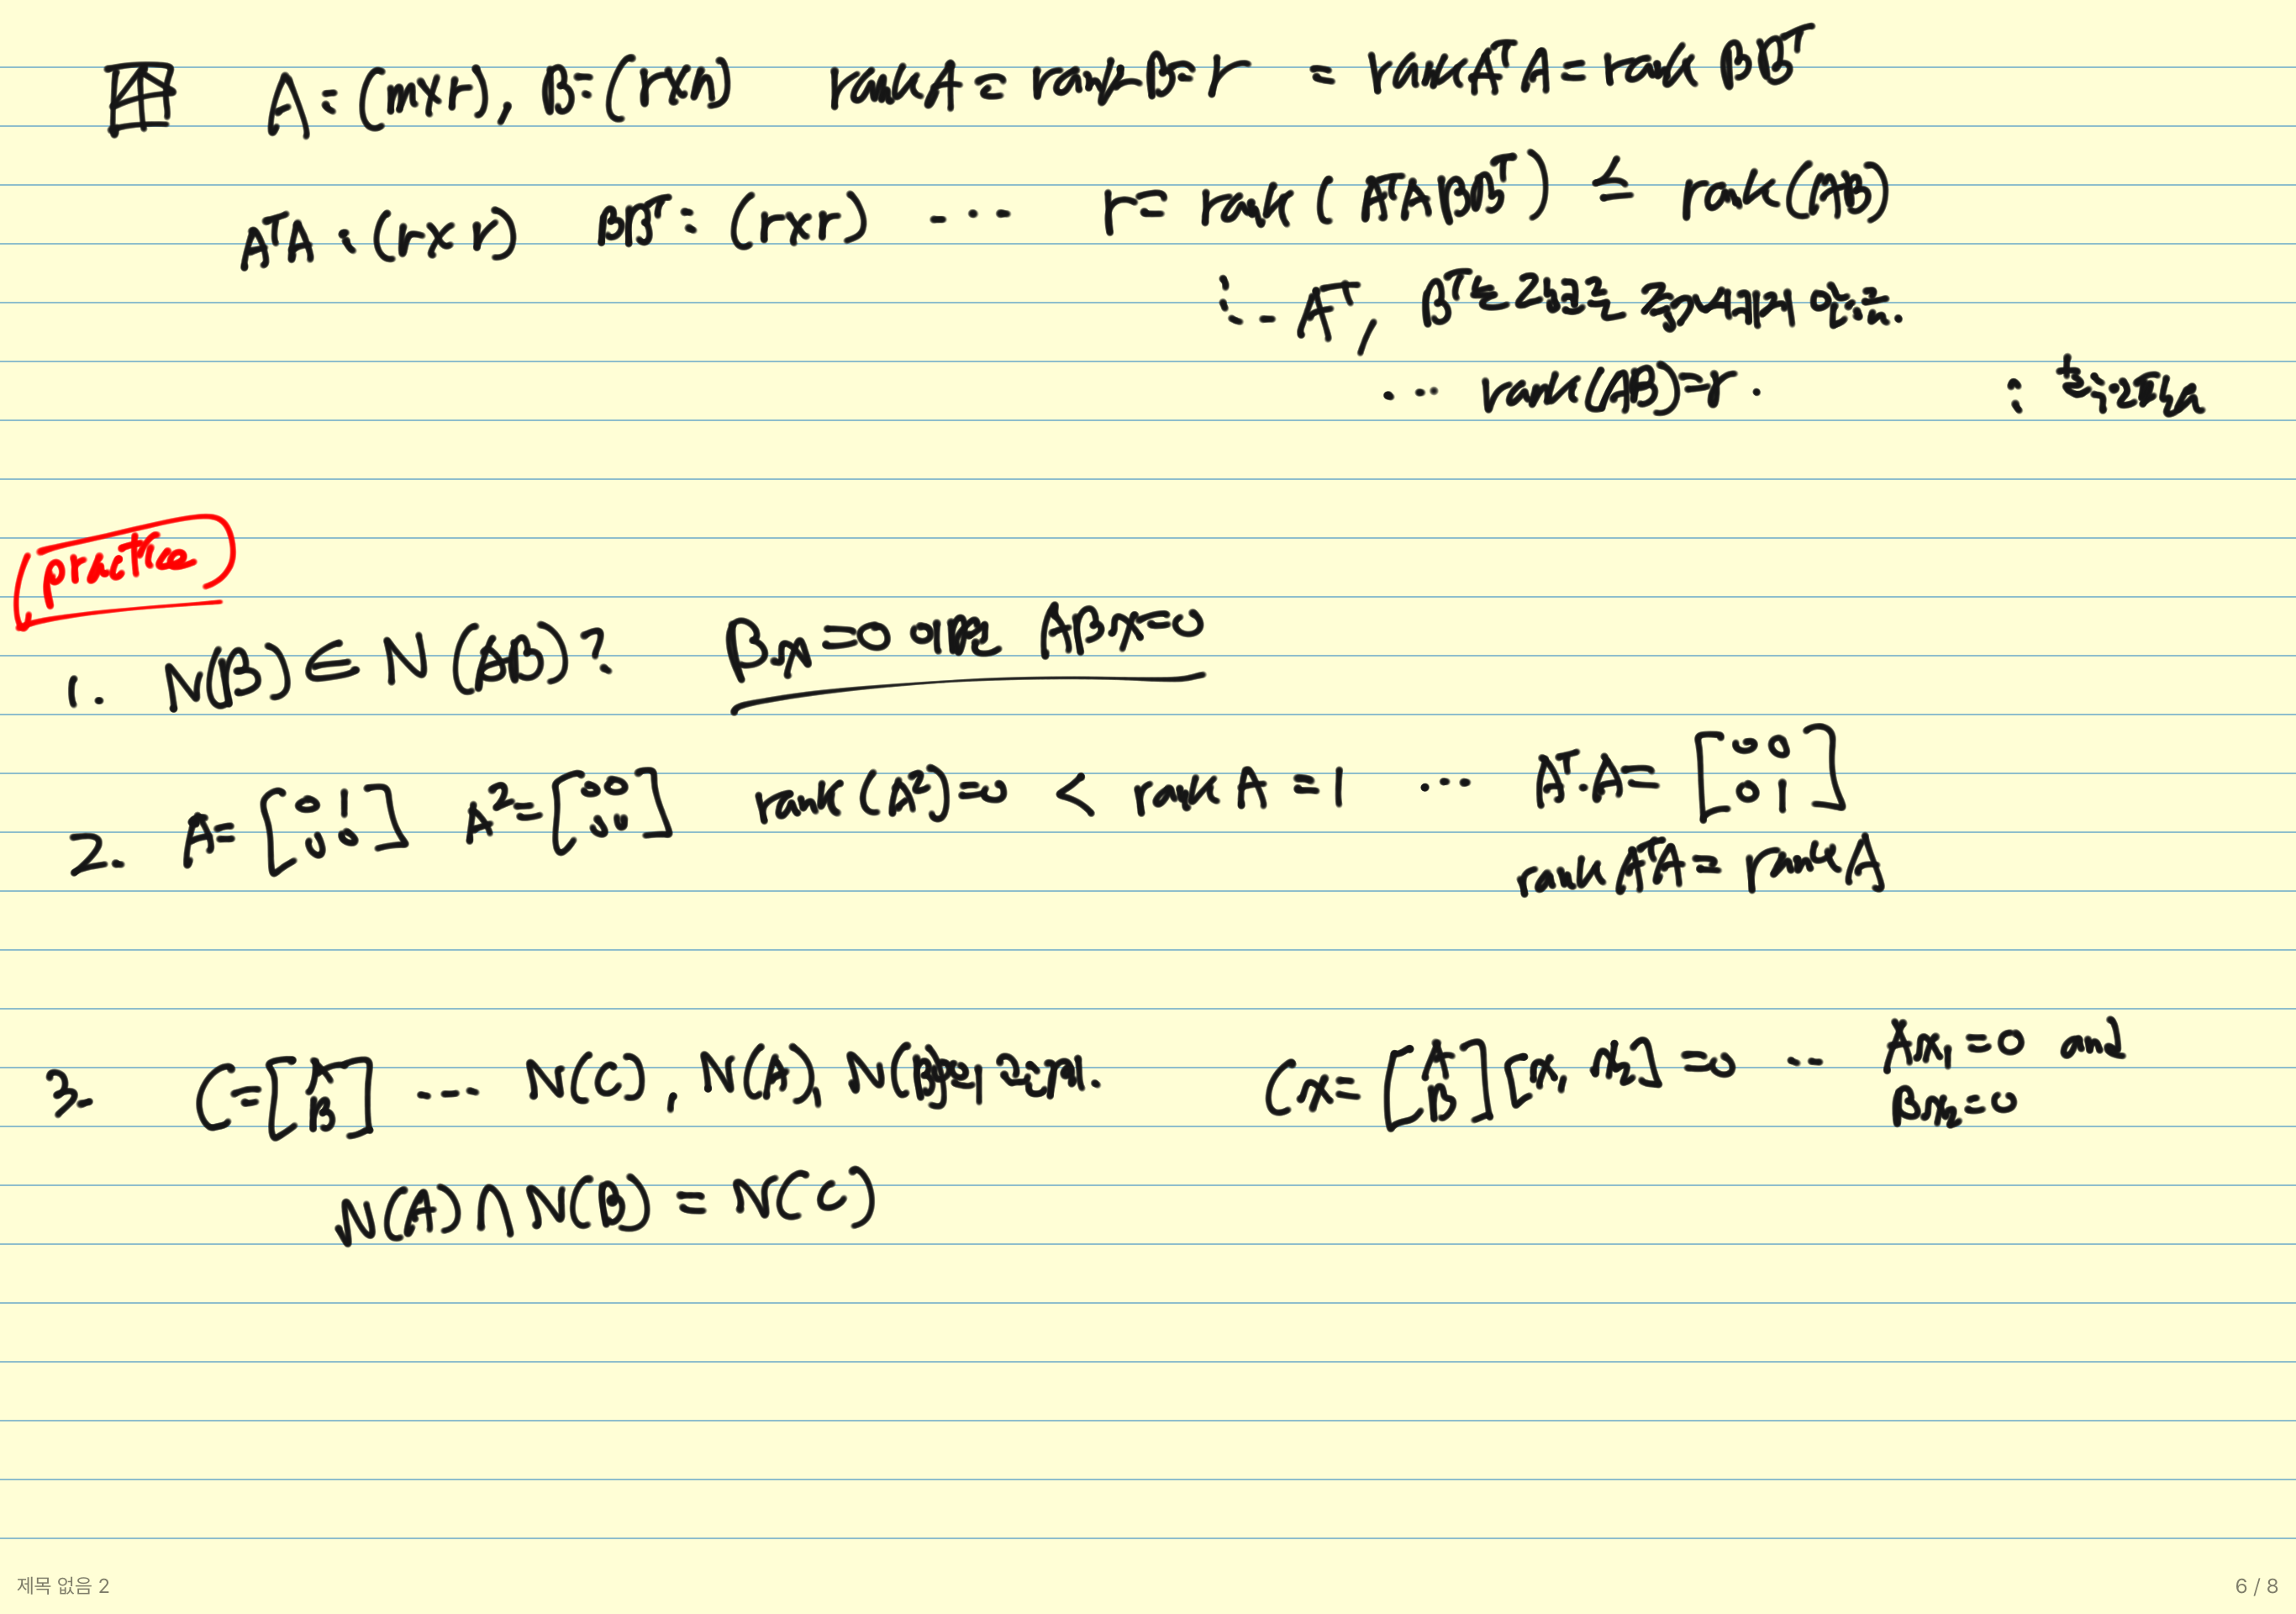 A = (m×r), B = (r×n) rank A = rank B = r = rank AᵀA = rank BBᵀ
AᵀA : (r×r) BBᵀ : (r×r) ... r = rank (AᵀABBᵀ) ≤ rank(AB)
∵ Aᵀ, Bᵀ는
... rank(AB)=r. :
practice
1. N(B) ∈ N(AB)? Bx=0 이면 ABx=0
2. A = [0 1; 0 0] A² = [0 0; 0 0] rank(A²)=0 < rank A = 1 ... Aᵀ·A = [0 0; 0 1]
rank AᵀA = rank A
3. C = [A; B] ... N(C), N(A), N(B)의 관계. Cx = [A; B][x₁ x₂] = 0 ... Ax₁=0 and
Bx₂=0
N(A) ∩ N(B) = N(C)
제목 없음 2 6 / 8